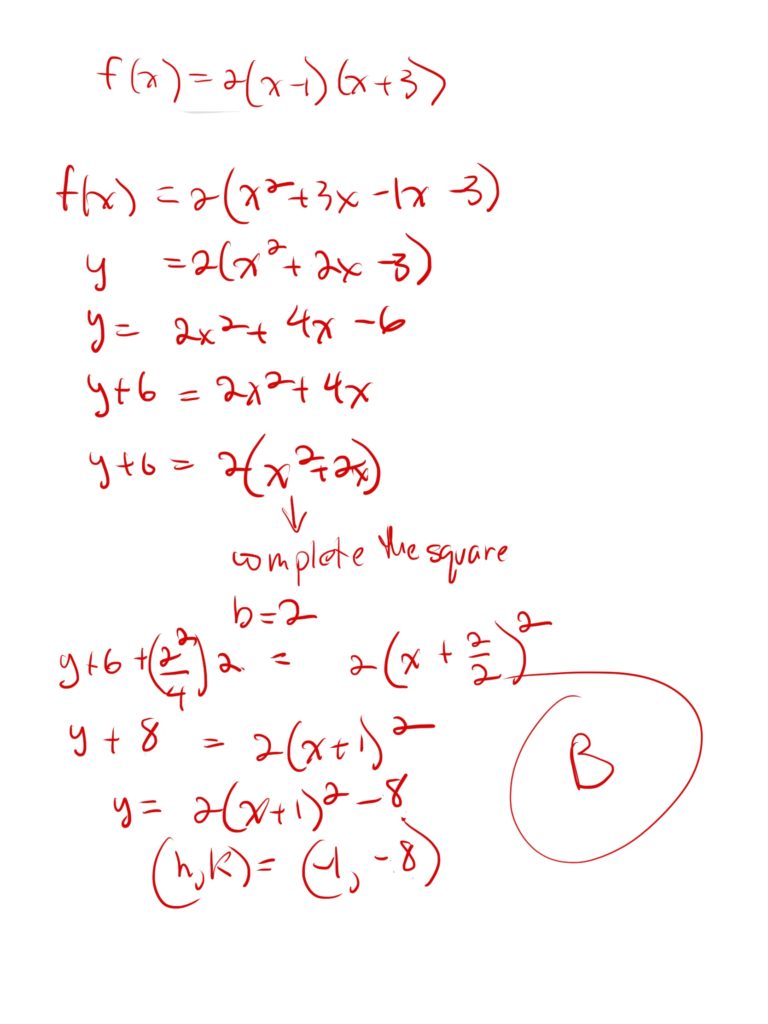 f(x) = 2(x-1)(x+3)
f(x) = 2(x²+3x-1x-3)
y = 2(x²+2x-3)
y = 2x²+4x-6
y+6 = 2x²+4x
y+6 = 2(x²+2x)
↓
complete the square
b=2
y+6+(2²/4)2 = 2(x+2/2)²
y+8 = 2(x+1)²
B
y = 2(x+1)²-8
(h,k) = (-1,-8)